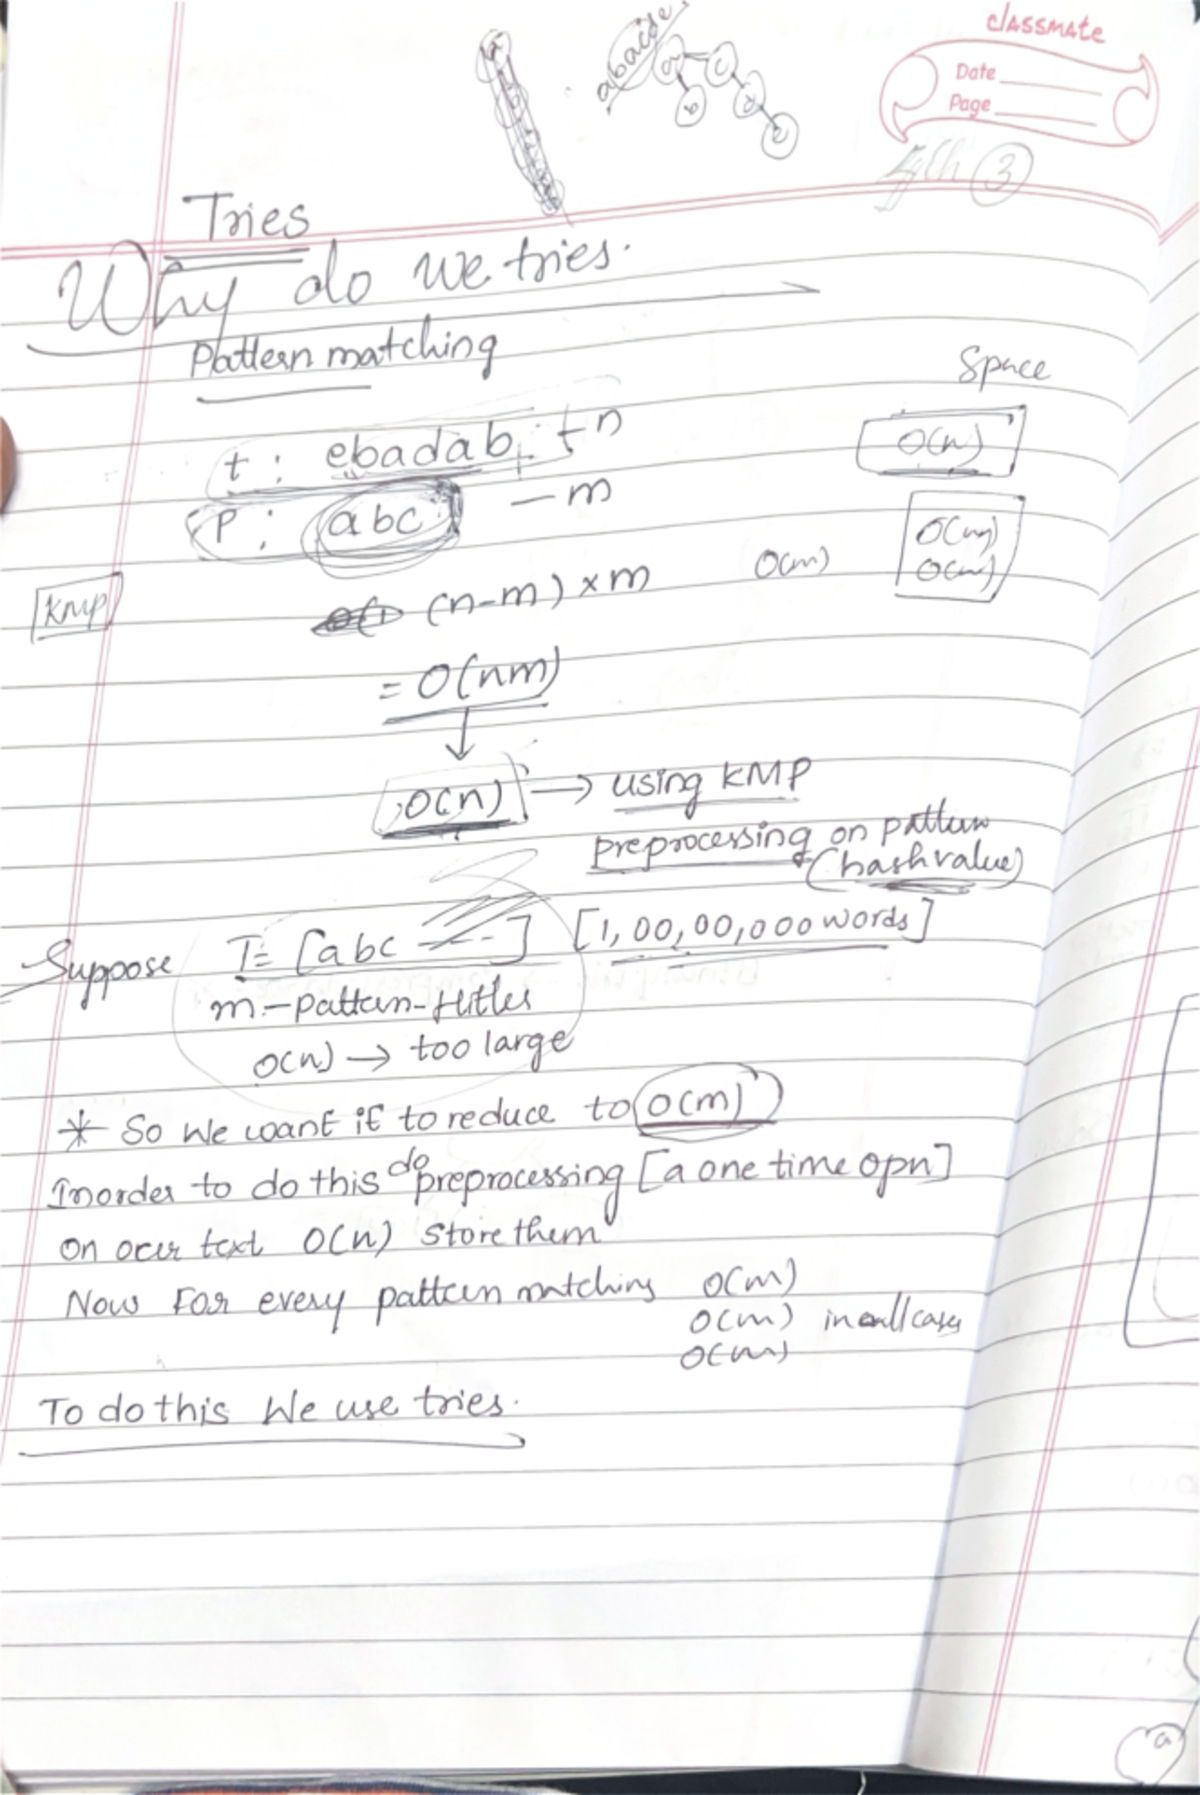 classmate
Date
Page
abacde
a c
b d
e
3
Tries
Why do we tries.
Pattern matching
Space
t : ebadab - n
O(n)
P : abc - m
O(m)
O(m)
O(m)
KMP
(n-m) x m
= O(nm)
O(n) → using KMP
preprocessing on pattern
(hash value)
Suppose T = [abc ---] [1,00,00,000 words]
m - pattern - Hitler
O(n) → too large
* So We want it to reduce to O(m)
Inorder to do this do preprocessing [a one time opn]
on our text O(n) Store them
Now For every pattern matching O(m)
O(m) in all cases
O(m)
To do this We use tries.
a